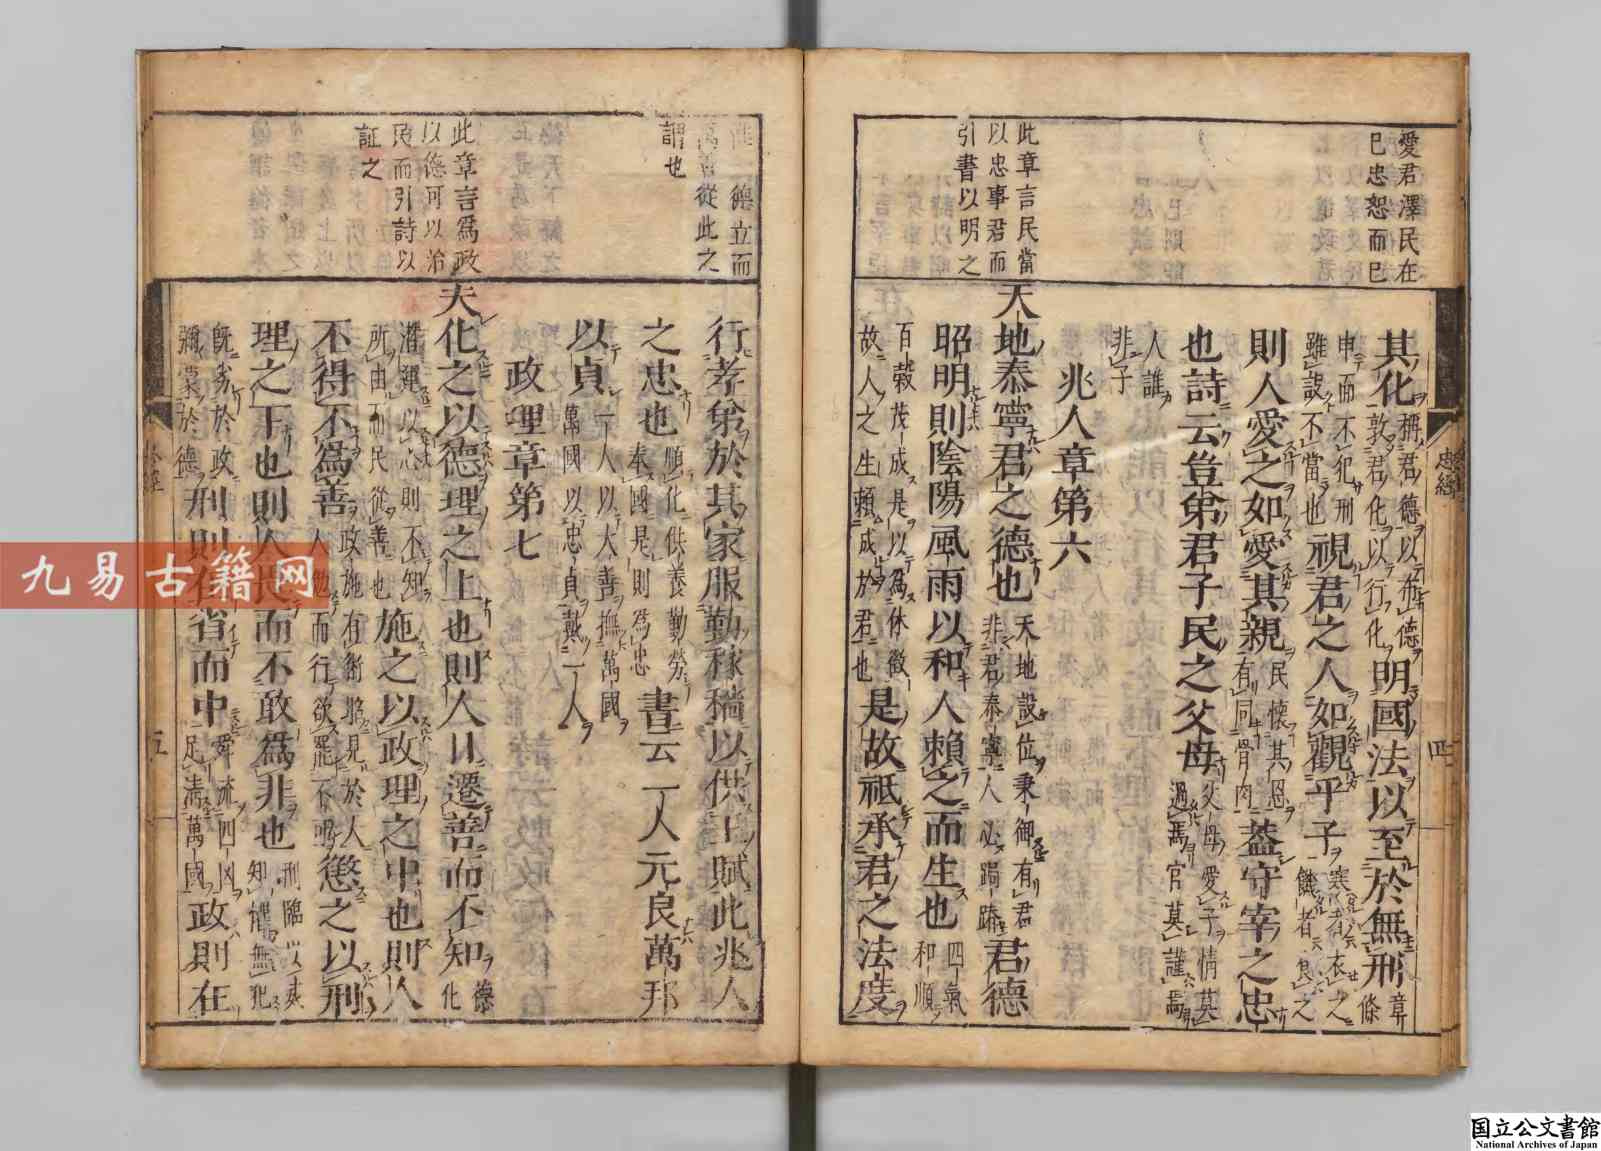 愛君澤民在
巳忠恕而巳
此章言民當
以忠事君而
引書以明之
其化稱君德以布德
敦君化以行化明國法以至於無刑章條
申而不犯刑
雖設不當也視君之人如觀乎子寒者衣之
餓者食之
則人愛之如愛其親民懷其恩
有同骨肉蓋守宰之忠
也詩云豈第君子民之父母父母愛子情莫
過焉官莫誰焉
人誰
非子
兆人章第六
天地泰寧君之德也天地設位秉御有君
非君泰寧人必跼蹐君德
昭明則陰陽風雨以和人賴之而生也四氣
和順
百穀茂成是以為休徵
故人之生賴成於君也是故祇承君之法度
忠經
四
惟一德立而
萬善從此之
謂也
此章言爲政
以德可以治
民而引詩以
証之
行孝第於其家服勤稼穡以供上賦此兆人
之忠也順化供養勤勞
奉國是則為忠書云一人元良萬邦
以貞一人以大善撫萬國
萬國以忠貞戴一人
政理章第七
夫化之以德理之上也則人日遷善而不知德化
潛運以心則不知
所由而民從善也施之以政理之中也則人
不得不爲善政施有術
人而行懲之以刑
理之下也則人民而不敢爲非也刑臨
知懼無犯
旣劣於政
彌棠於德刑則在省而中舜流四凶
足淸萬國政則在
五
九易古籍网
国立公文書館
National Archives of Japan